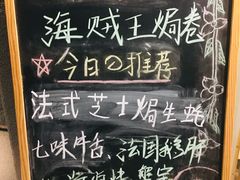 海贼王焗卷
☆今日の推荐
法式芝士焗生蚝
七味牛舌、法国鹅肝
烤蟹宝